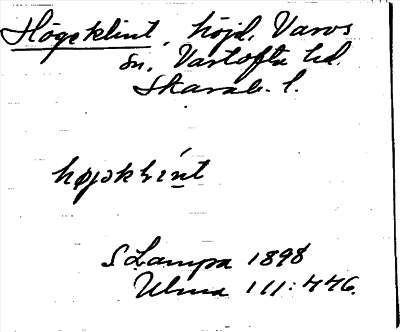 Högeklint, höjd, Varvs
sn, Vartofta hd.
Skarab. l.
højəklint
S Lampa 1898
Ulma 111:446.